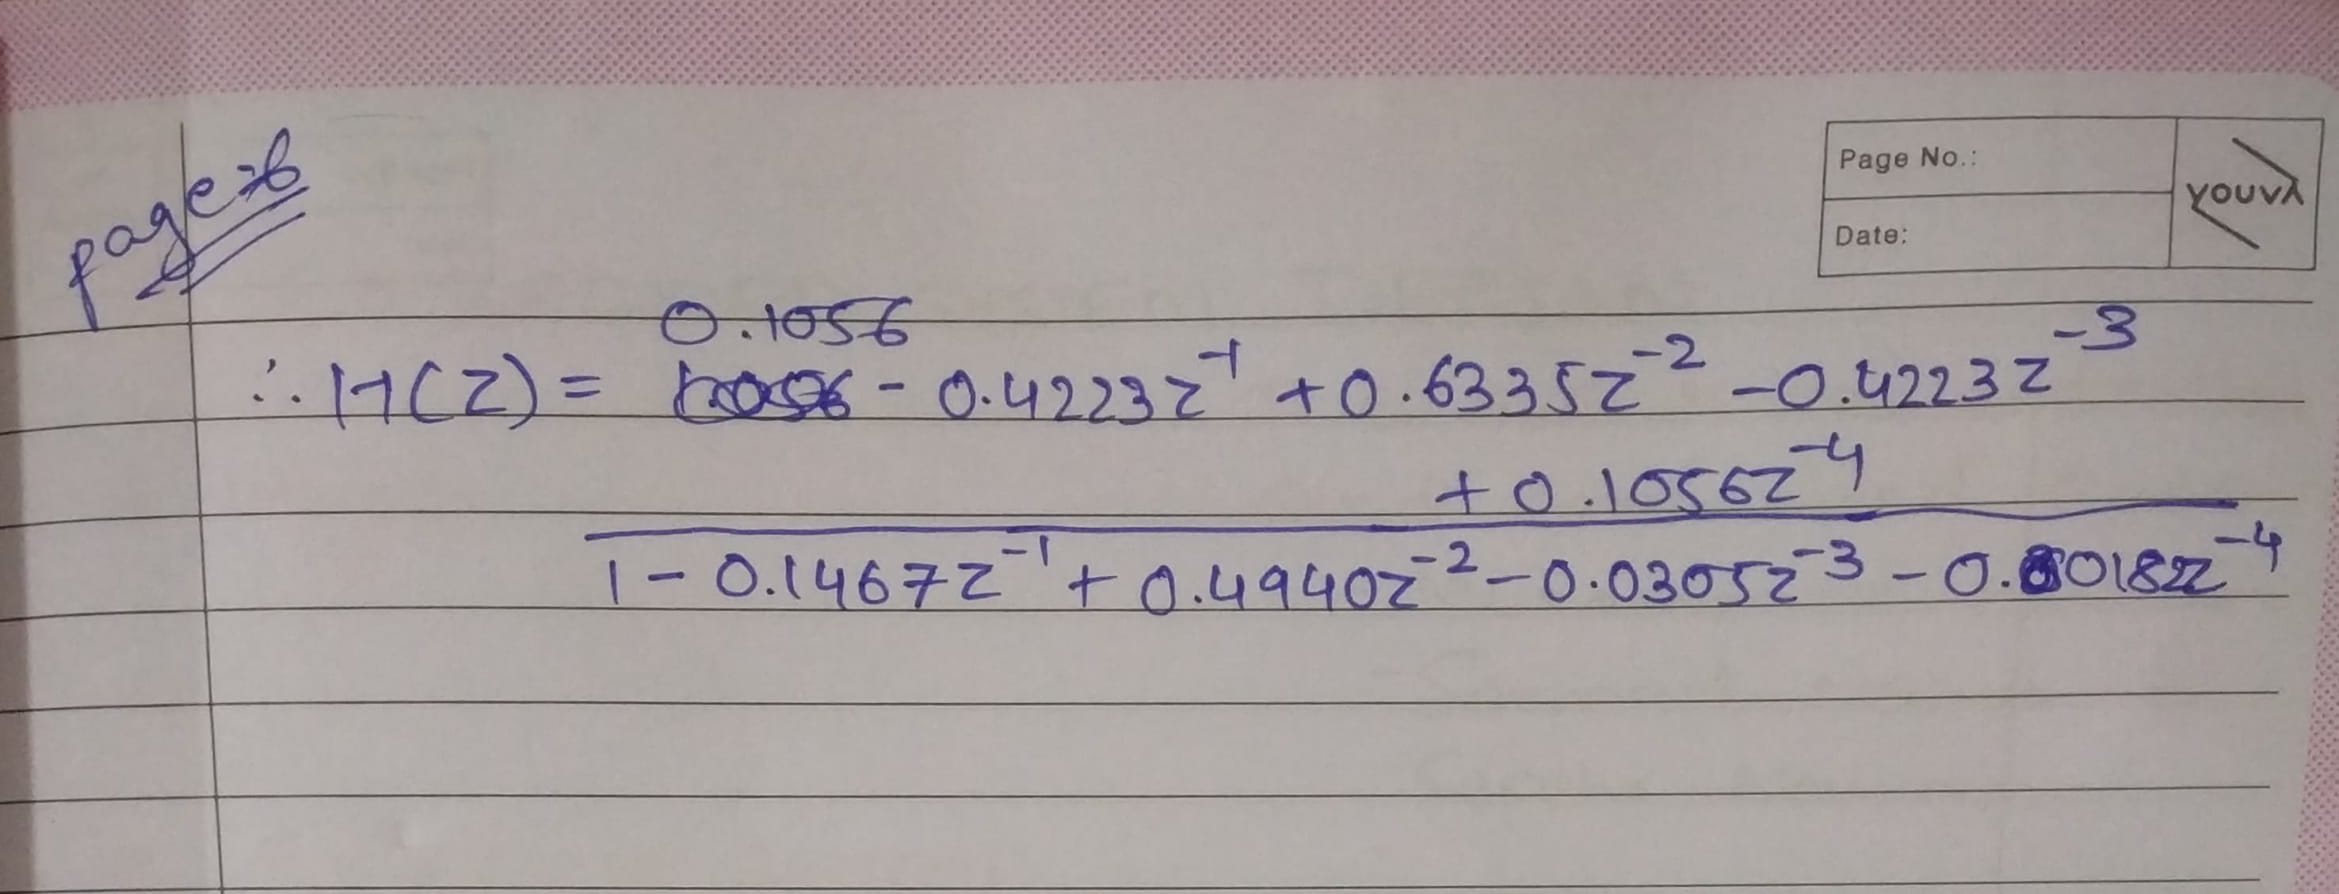 page⇒6
Page No.:
Date:
YOUVA
0.1056
∴ H(Z) = - 0.4223z⁻¹ + 0.6335z⁻² - 0.4223z⁻³
+ 0.1056z⁻⁴
1 - 0.1467z⁻¹ + 0.4940z⁻² - 0.0305z⁻³ - 0.0018z⁻⁴